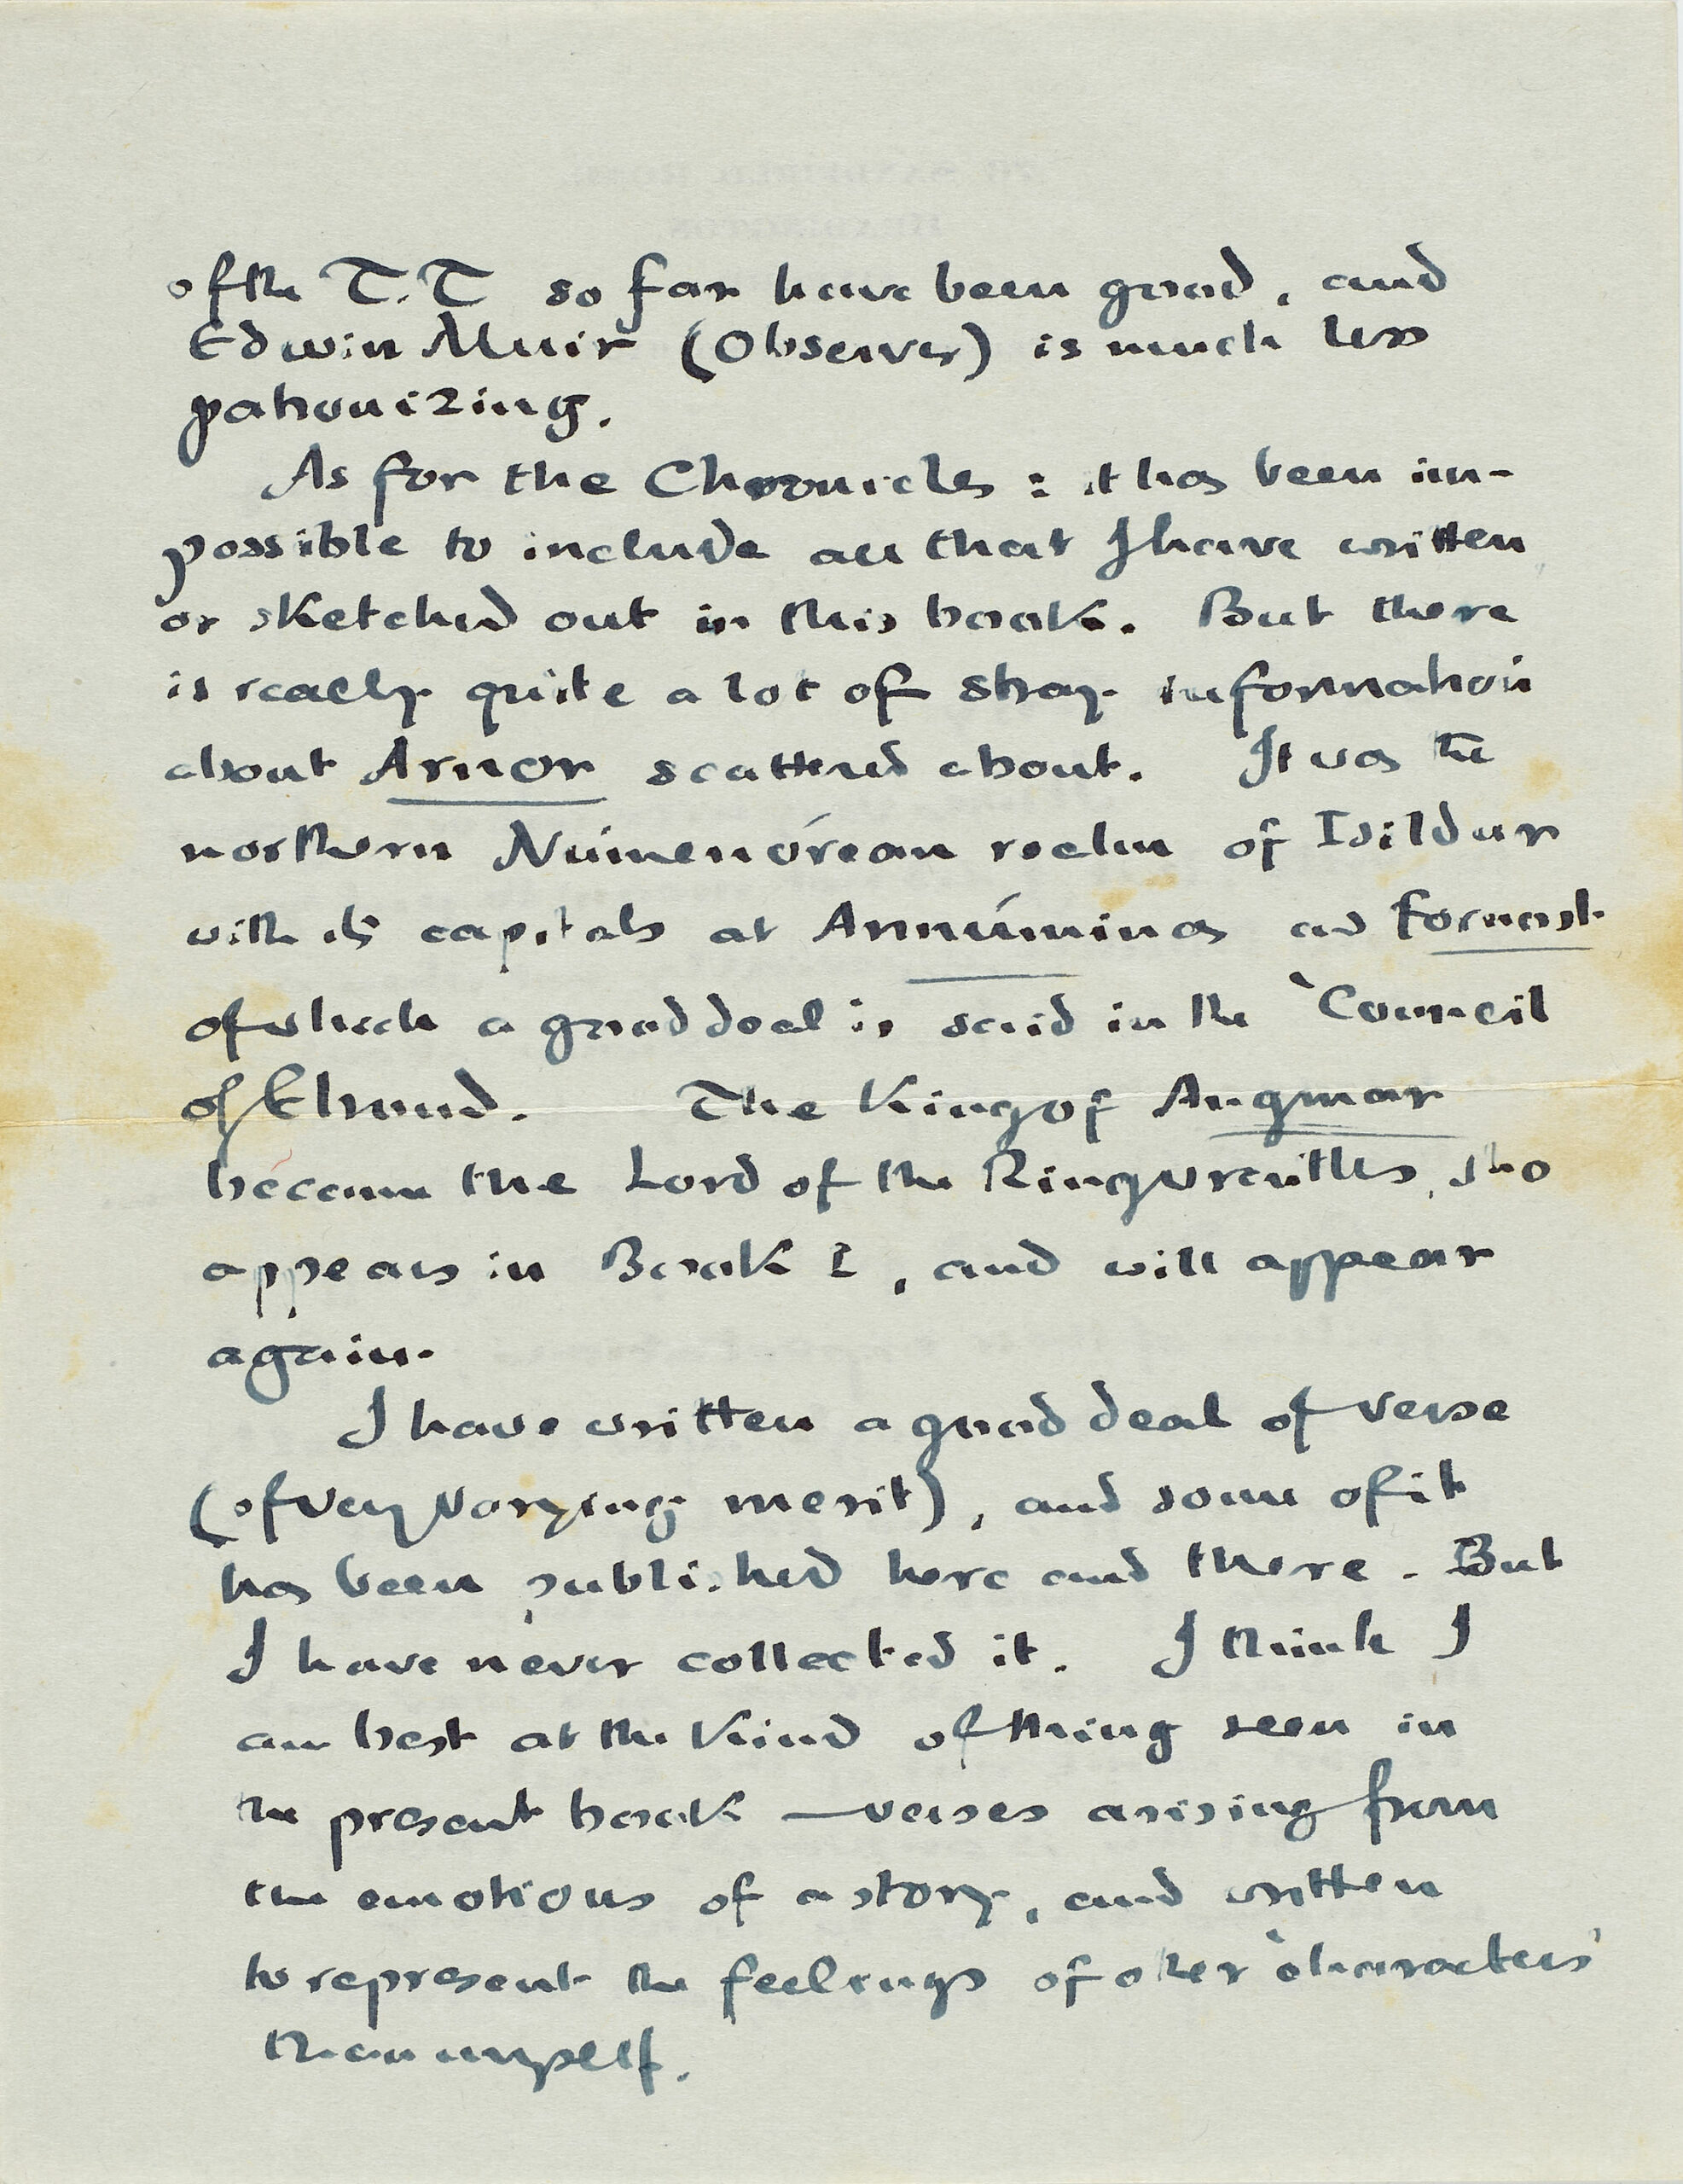 of the T.T so far have been good, and
Edwin Muir (Observer) is much less
patronizing.
As for the Chronicles : it has been im-
possible to include all that I have written
or sketched out in this book. But there
is really quite a lot of stray information
about Arnor scattered about. It was the
northern Númenórean realm of Isildur
with its capitals at Annúminas and Fornost
of which a good deal is said in the 'Council
of Elrond. The King of Angmar
became the Lord of the Ringwraiths, who
appears in Book I, and will appear
again.
I have written a good deal of verse
(of very varying merit), and some of it
has been published here and there. But
I have never collected it. I think I
am best at the kind of thing seen in
the present book — verses arising from
the emotions of a story, and written
to represent the feelings of other 'characters'
than myself.